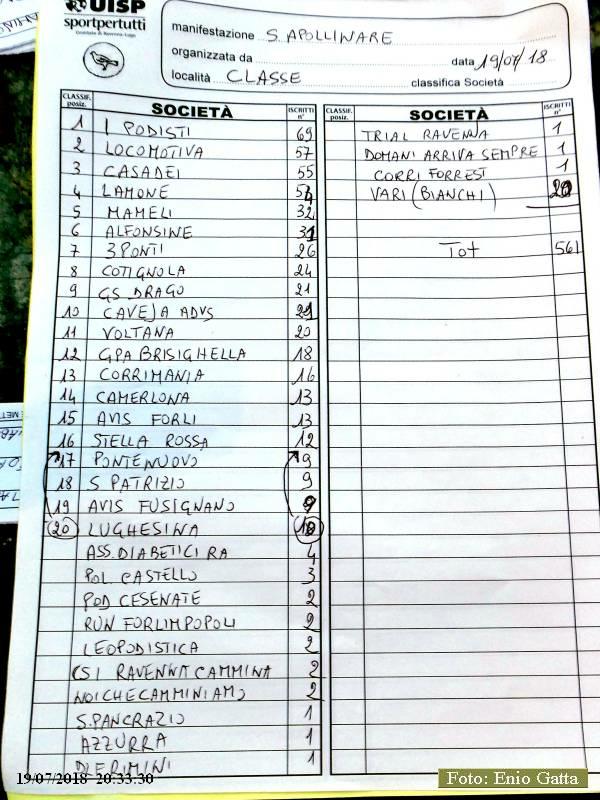 UISP
sportpertutti
Comitato di Ravenna-Lugo
manifestazione S. APOLLINARE
organizzata da data 19/07/18
località CLASSE classifica Società
CLASSIF. posiz. SOCIETÀ ISCRITTI n°
1 I PODISTI 69
2 LOCOMOTIVA 57
3 CASADEI 55
4 LAMONE
5 MAMELI 32
6 ALFONSINE 31
7 3 PONTI 26
8 COTIGNOLA 24
9 GS DRAGO 21
10 CAVEJA ADVS 21
11 VOLTANA 20
12 GPA BRISIGHELLA 18
13 CORRIMANIA 16
14 CAMERLONA 13
15 AVIS FORLI 13
16 STELLA ROSSA 12
17 PONTENUOVO 9
18 S PATRIZIO 9
19 AVIS FUSIGNANO 9
20 LUGHESINA 10
ASS. DIABETICI RA 4
POL CASTELLO 3
POD CESENATE 2
RUN FORLIMPOPOLI 2
LEOPODISTICA 2
CSI RAVENNA CAMMINA 2
NOICHECAMMINIAMO 2
S. PANCRAZIO 1
AZZURRA 1
DLF RIMINI 1
CLASSIF. posiz. SOCIETÀ ISCRITTI n°
TRIAL RAVENNA 1
DOMANI ARRIVA SEMPRE 1
CORRI FORREST 1
VARI (BIANCHI) 20
Tot 561
19/07/2018 20:33:30
Foto: Enio Gatta